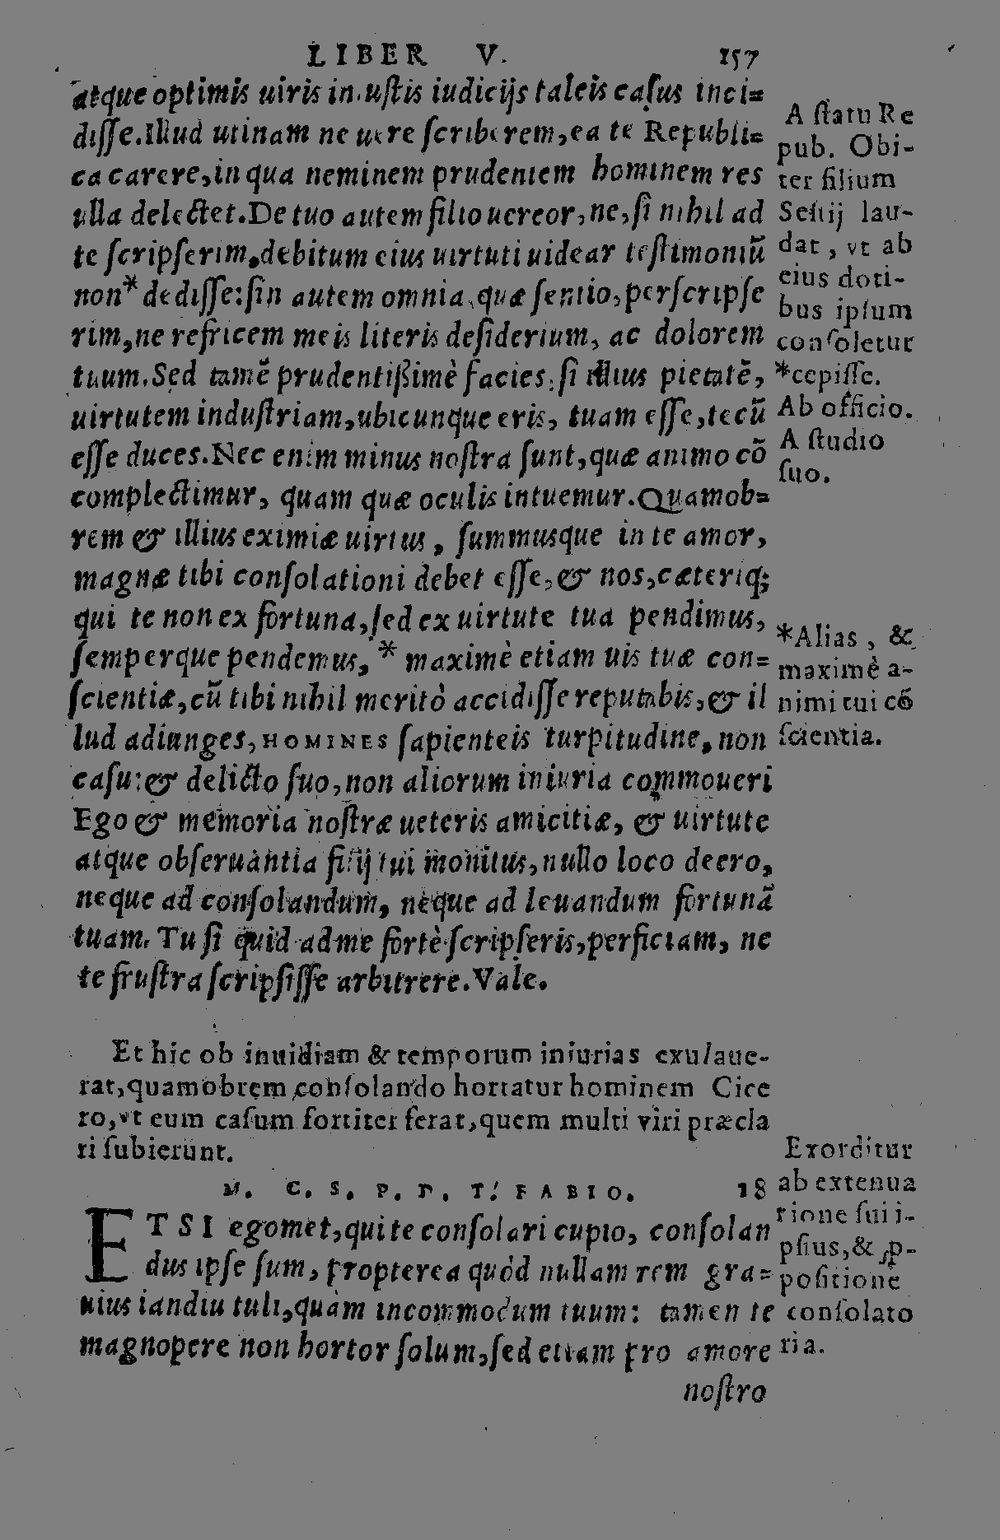 LIBER V. 157
atque optimis uiris iniustis iudicijs taleis casus inci=
disse. Illud utinam ne uere scriberem, ea te Republi=
ca carere, in qua neminem prudentem hominem res
ulla delectet. De tuo autem filio uereor, ne, si nihil ad
te scripserim, debitum eius uirtuti uidear testimoniũ
non* dedisse: sin autem omnia, quæ sentio, perscripse
rim, ne refricem meis literis desiderium, ac dolorem
tuum. Sed tamẽ prudentißimè facies, si illius pietatẽ,
uirtutem industriam, ubicunque eris, tuam esse, tecũ
esse duces. Nec enim minus nostra sunt, quæ animo cõ
complectimur, quam quæ oculis intuemur. Quamob=
rem & illius eximiæ uirtus, summusque in te amor,
magnæ tibi consolationi debet esse, & nos, cæteriq;
qui te non ex fortuna, sed ex uirtute tua pendimus,
semperque pendemus, * maximè etiam uis tuæ con=
scientiæ, cũ tibi nihil meritò accidisse reputabis, & il
lud adiunges, HOMINES sapienteis turpitudine, non
casu: & delicto suo, non aliorum iniuria commoueri
Ego & memoria nostræ ueteris amicitiæ, & uirtute
atque obseruantia filij tui monitus, nullo loco deero,
neque ad consolandum, neque ad leuandum fortunã
tuam. Tu si quid ad me fortè scripseris, perficiam, ne
te frustra scripsisse arbitrere. Vale.
A statu Re
pub. Obi-
ter filium
Sestij lau-
dat, vt ab
eius doti-
bus ipsum
consoletur
*cepisse.
Ab officio.
A studio
suo.
*Alias, &
maximè a-
nimi tui cõ
scientia.
Et hic ob inuidiam & temporum iniurias exulaue-
rat, quamobrem consolando hortatur hominem Cice
ro, vt eum casum fortiter ferat, quem multi viri præcla
ri subierunt.
M. C. S. P. D. T. FABIO. 18
ETSI egomet, qui te consolari cupio, consolan
dus ipse sum, propterea quòd nullam rem gra=
uius iandiu tuli, quàm incommodum tuum: tamen te
magnopere non hortor solum, sed etiam pro amore
nostro
Exorditur
ab extenua
tione sui i-
psius, & ꝓ-
positione
consolato
ria.